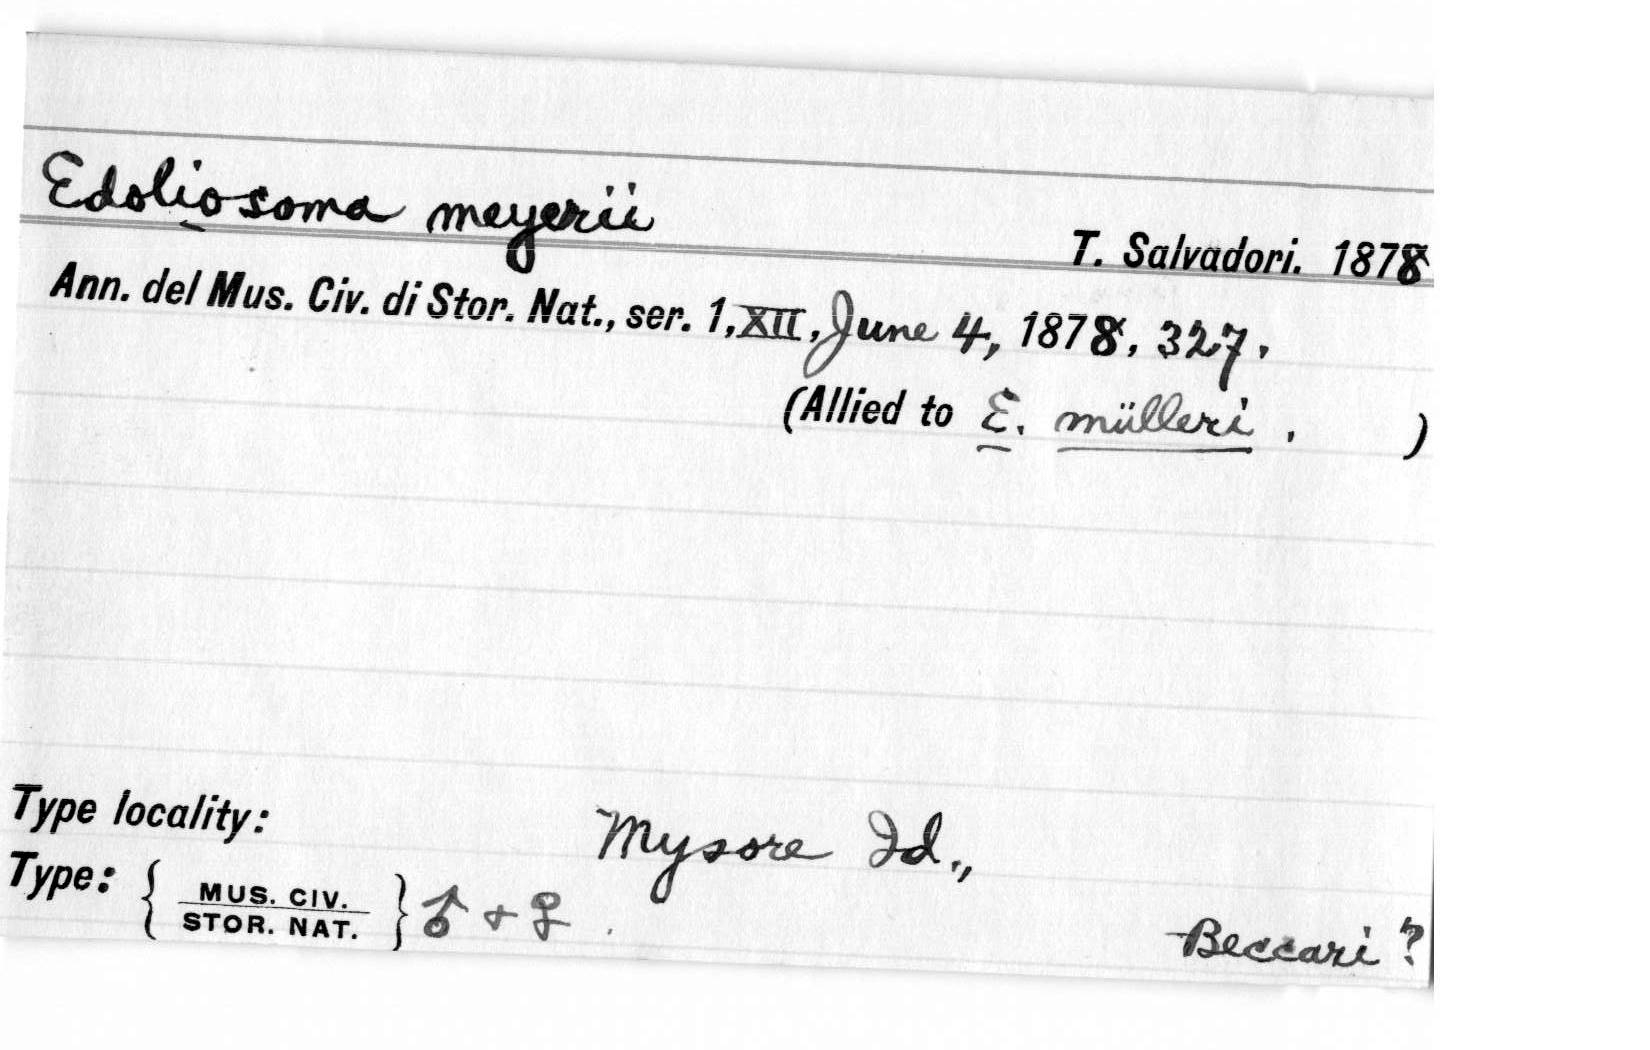 Edoliosoma meyerii
T. Salvadori. 1878
Ann. del Mus. Civ. di Stor. Nat., ser. 1, XII, June 4, 1878, 327.
(Allied to E. mülleri . )
Type locality:
Mysore Id.,
Type: { MUS. CIV.
STOR. NAT. } ♂ + ♀ .
Beccari ?